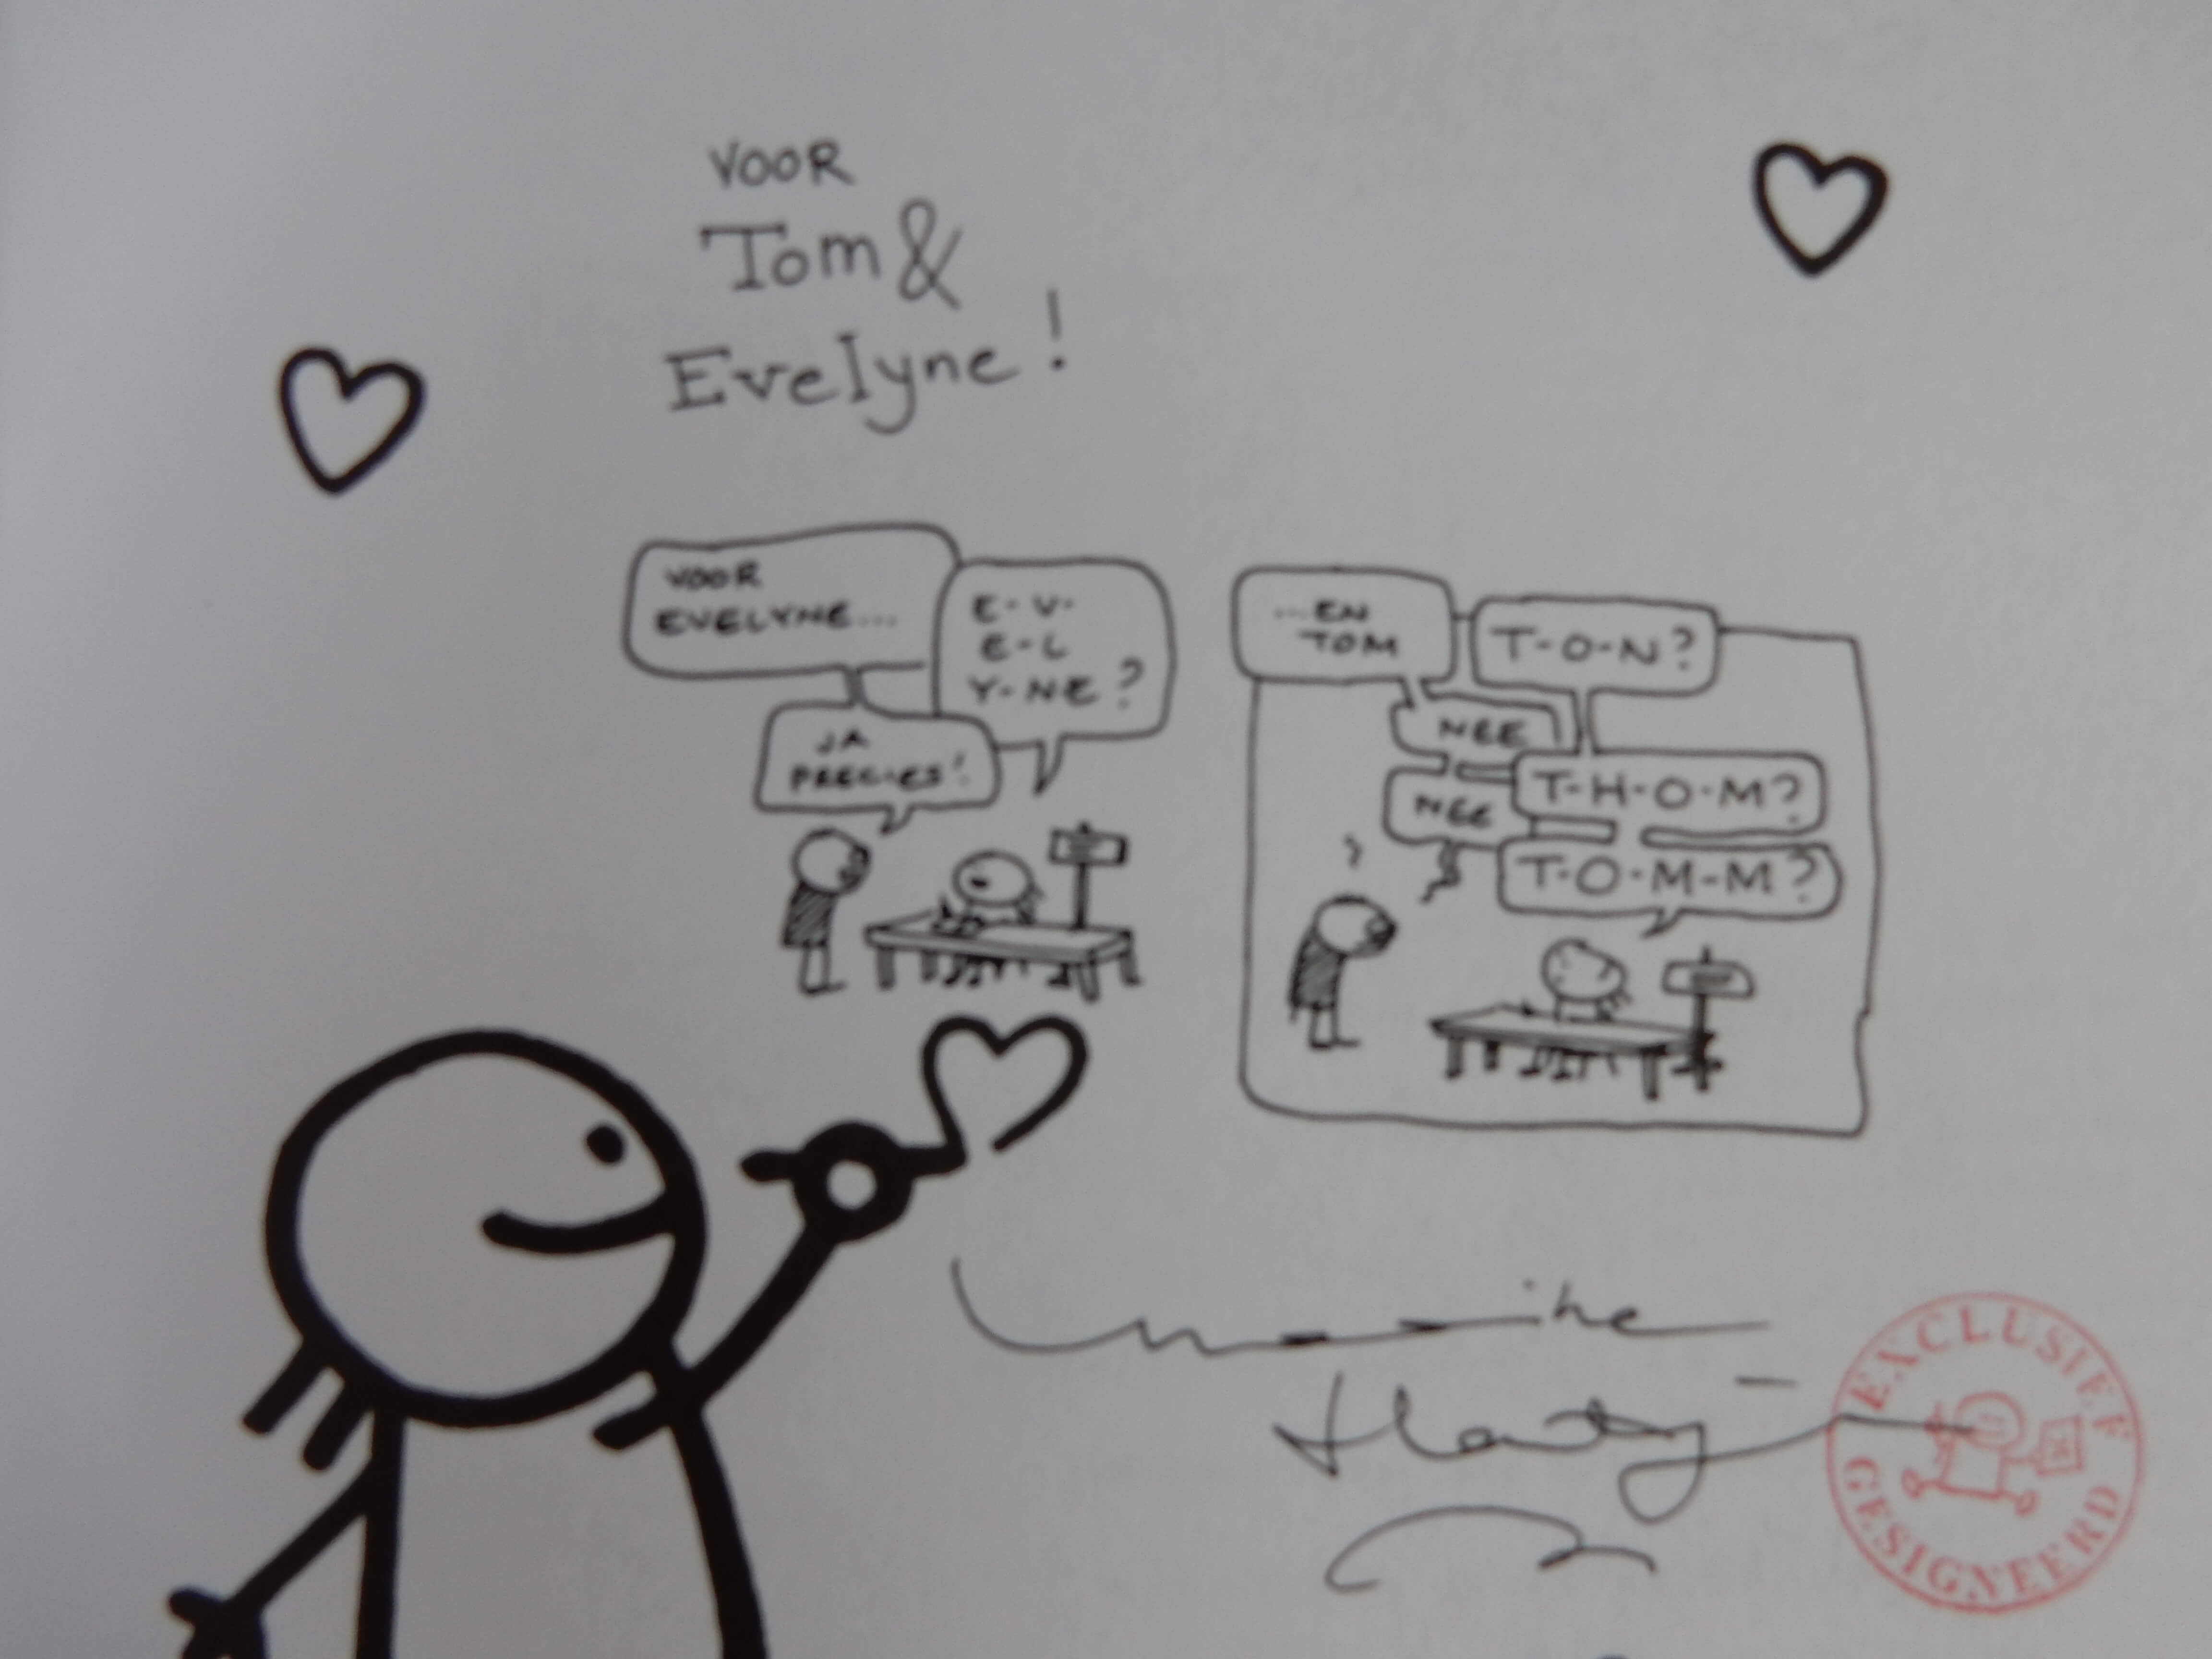 VOOR
Tom &
Evelyne!
VOOR
EVELYNE...
E-V-
E-L
Y-NE?
JA
PRECIES!
...EN
TOM
T-O-N?
NEE
T-H-O-M?
NEE
T-O-M-M?
EXCLUSIEF
GESIGNEERD